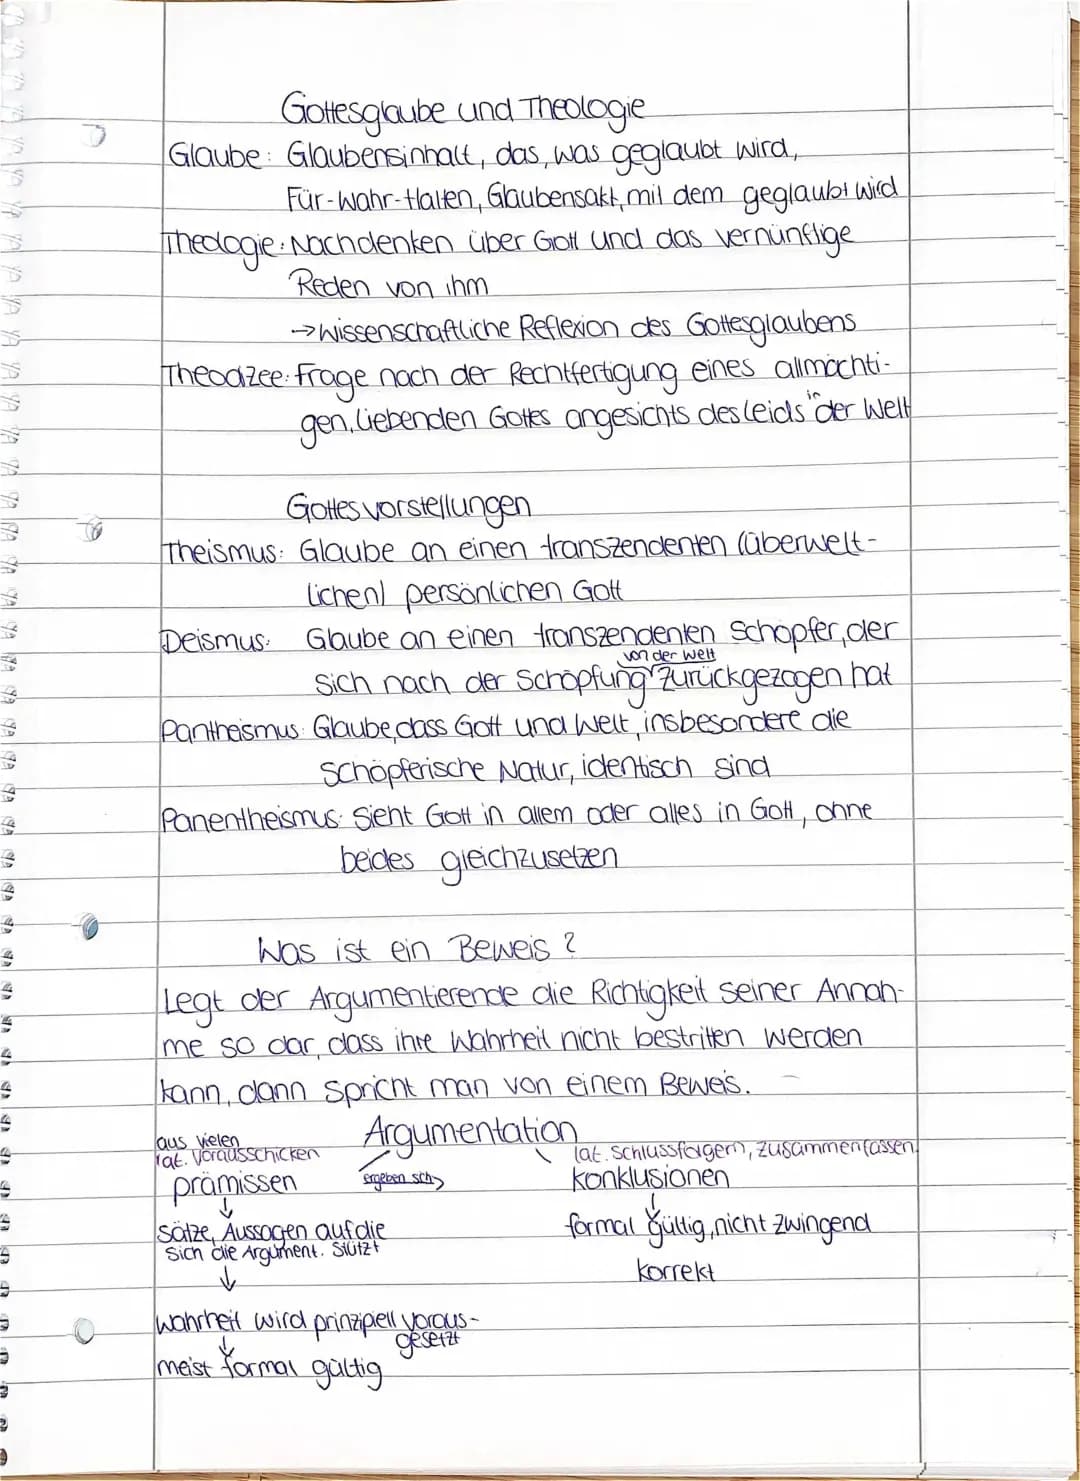 Gottesglaube und Theologie
Glaube: Glaubensinhalt, das, was geglaubt wird,
Für-Wahr-Halten, Glaubensakt, mit dem geglaubt wird
Theologie: Nachdenken über Gott und das vernünftige
Reden von ihm
→ Wissenschaftliche Reflexion des Gottesglaubens
Theodzee: Frage nach der Rechtfertigung eines allmächti-
gen, liebenden Gottes angesichts des Leids in der Welt
Gottesvorstellungen
Theismus: Glaube an einen transzendenten (überwelt-
lichen) persönlichen Gott
Deismus: Glaube an einen transzendenten Schöpfer, der
sich nach der Schöpfung von der Welt zurückgezogen hat
Pantheismus: Glaube, dass Gott und Welt, insbesondere die
schöpferische Natur, identisch sind
Panentheismus: Sieht Gott in allem oder alles in Gott, ohne
beides gleichzusetzen
Was ist ein Beweis?
Legt der Argumentierende die Richtigkeit seiner Annah-
me so dar, dass ihre Wahrheit nicht bestritten werden
kann, dann spricht man von einem Beweis.
Argumentation
aus vielen
lat. vorausschicken
lat. schlussfolgern, zusammenfassen
prämissen
ergeben sich →
konklusionen
↓
Sätze, Aussagen auf die
sich die Argument. stützt
↓
formal gültig, nicht zwingend
korrekt
↓
Wahrheit wird prinzipiell voraus-
gesetzt
↓
meist formal gültig